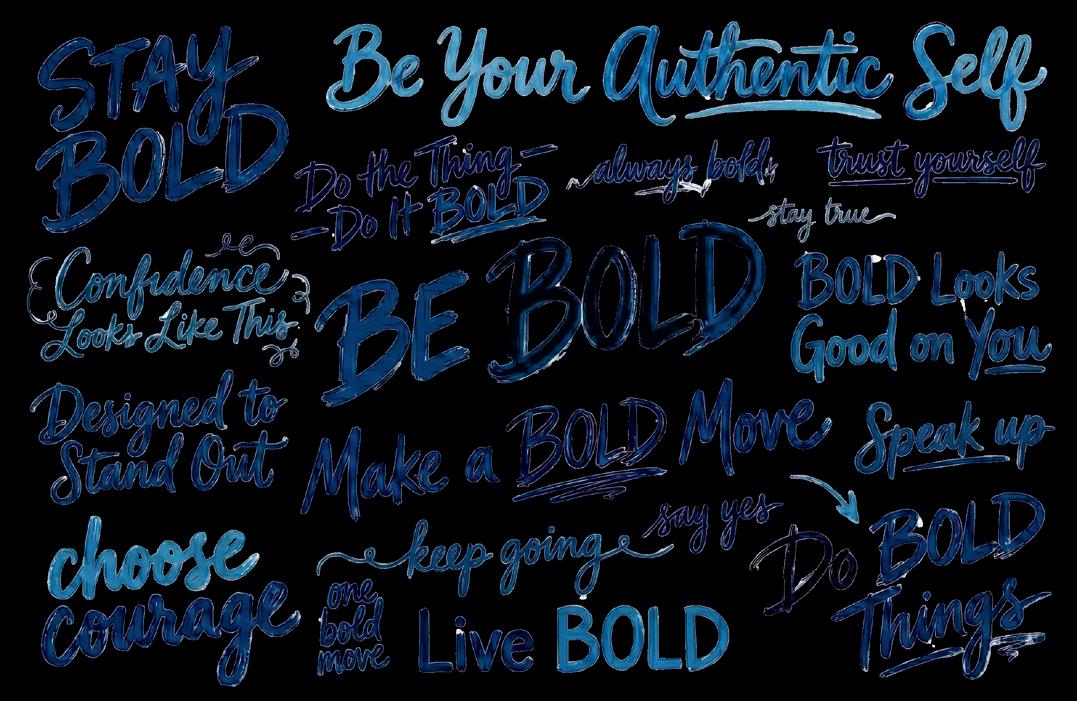 STAY
BOLD
Be Your Authentic Self
Do the Thing
Do It BOLD
always bold
trust yourself
stay true
Confidence
Looks Like This
BE BOLD
BOLD Looks
Good on You
Designed to
Stand Out
Make a BOLD Move
Speak up
choose
courage
keep going
say yes
Do BOLD
Things
one
bold
move
Live BOLD